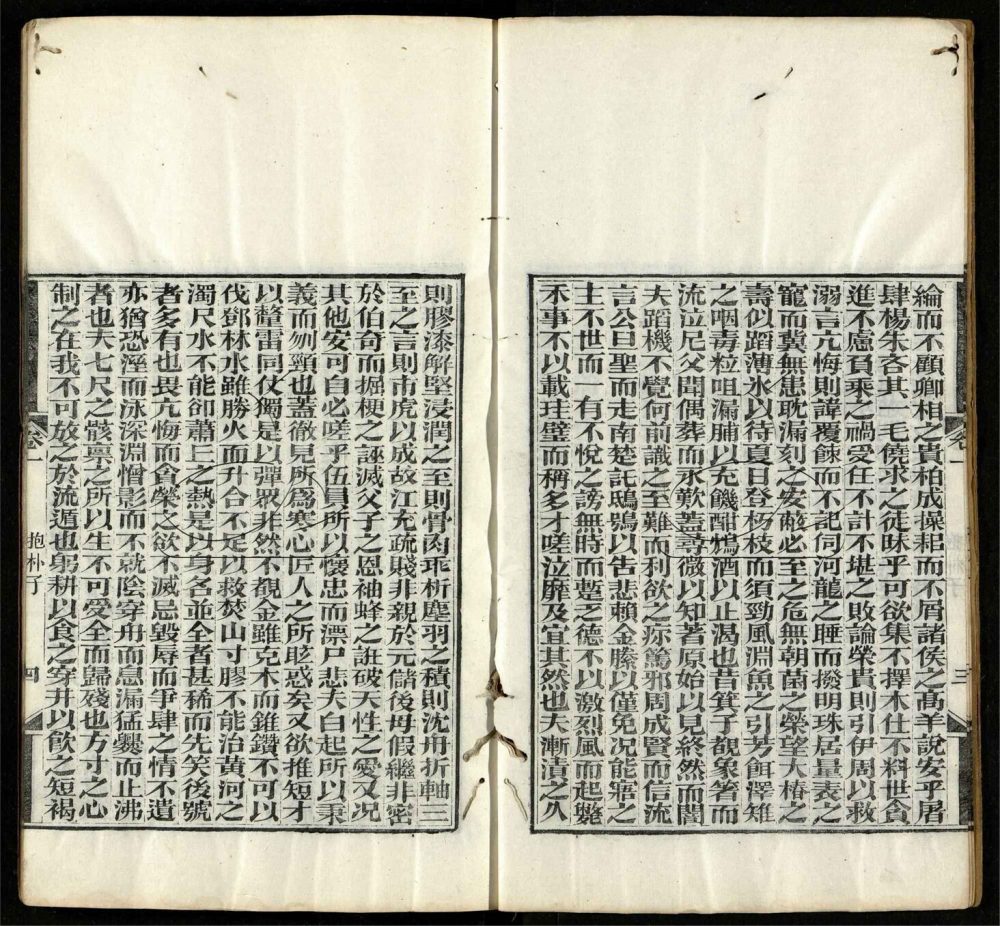 綸而不顧卿相之貴柏成操耜而不屑諸侯之高羊說安乎屠
肆楊朱吝其一毛僥求之徒昧乎可欲集不擇木仕不料世貪
進不慮負乘之禍受任不計不堪之敗論榮貴則引伊周以救
溺言亢悔則諱覆餗而不記伺河龍之睡而撥明珠居量表之
寵而冀無患耽漏刻之安蔽必至之危無朝菌之榮望大椿之
壽似蹈薄氷以待夏日登朽枝而須勁風淵魚之引芳餌澤雉
之咽毒粒咀漏脯以充饑酣鴆酒以止渴也昔箕子覩象箸而
流泣尼父聞偶葬而永歎蓋尋微以知著原始以見終然而闇
夫蹈機不覺何前識之至難而利欲之疢篤邪周成賢而信流
言公旦聖而走南楚託鴟鴞以告悲賴金縢以僅免况能寤之
主不世而一有不悅之謗無時而蹔乏德不以激烈風而起斃
禾事不以載珪璧而稱多才嗟泣靡及宜其然也夫漸漬之久
則膠漆解堅浸潤之至則骨肉乖析塵羽之積則沈舟折軸三
至之言則市虎以成故江充疏賤非親於元儲後母假繼非密
於伯奇而掘梗之誣滅父子之恩袖蜂之誑破天性之愛又况
其他安可自必嗟乎伍員所以懷忠而漂尸悲夫白起所以秉
義而刎頸也蓋徹見所爲寒心匠人之所眩惑矣又欲推短才
以釐雷同仗獨是以彈衆非然不覩金雖克木而錐鑽不可以
伐鄧林水雖勝火而升合不足以救焚山寸膠不能治黃河之
濁尺水不能卻蕭丘之熱是以身名並全者甚稀而先笑後號
者多有也畏亢悔而貪榮之欲不滅忌毀辱而爭肆之情不遣
亦猶恐溼而泳深淵憎影而不就陰穿舟而息漏猛爨而止沸
者也夫七尺之骸稟之所以生不可愛全而歸殘也方寸之心
制之在我不可放之於流遁也躬耕以食之穿井以飲之短褐
卷一
抱朴子
四
卷一
三